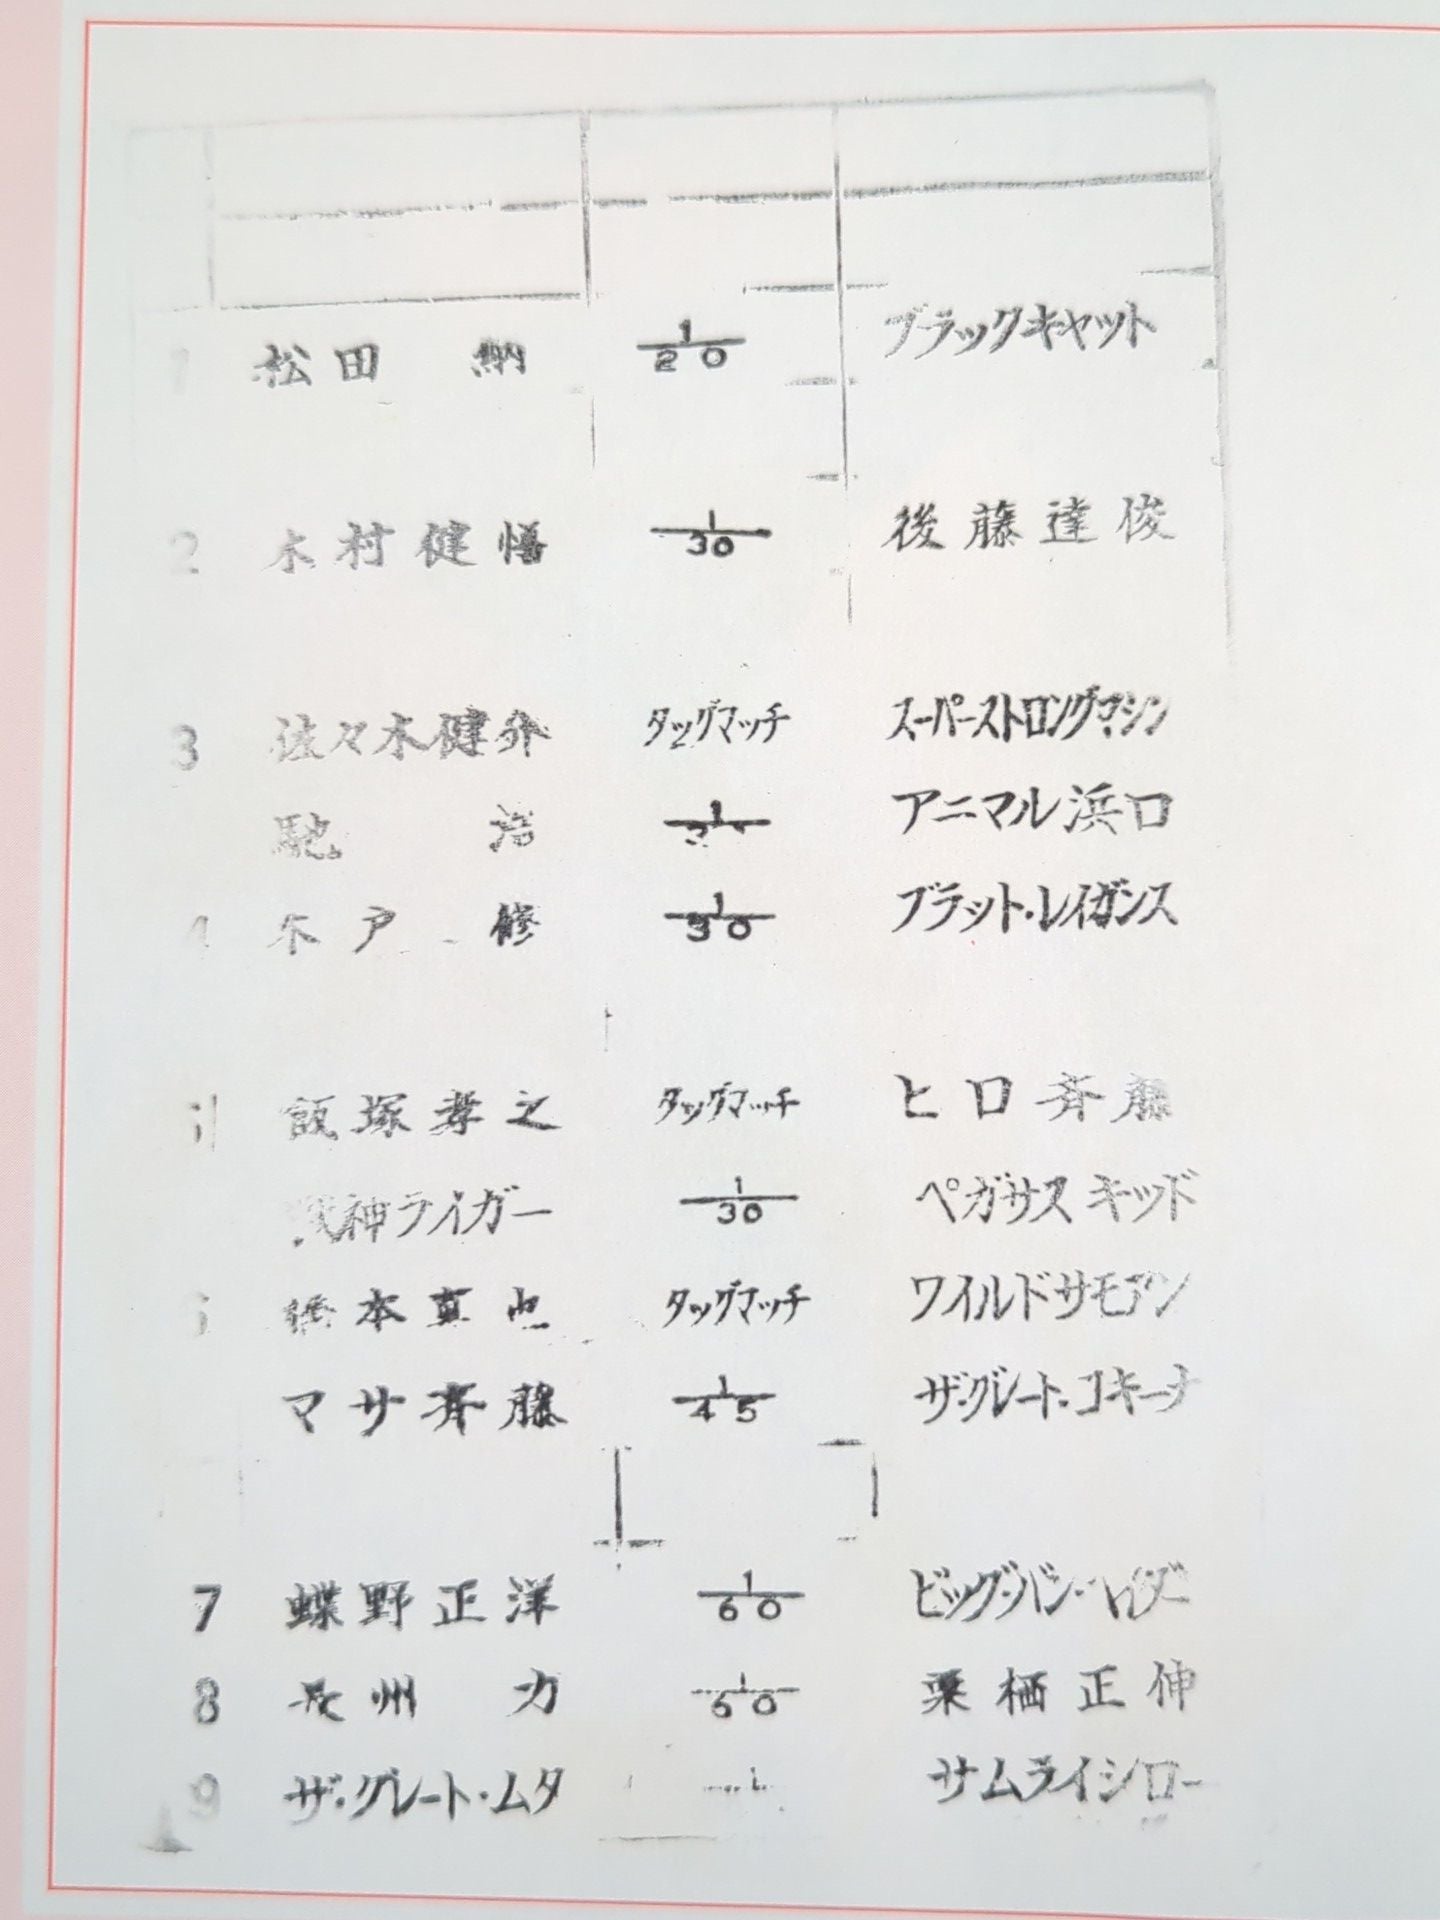 1 松田 納 1/20 ブラックキャット
2 木村健悟 1/30 後藤達俊
3 佐々木健介 タッグマッチ スーパーストロングマシン
馳 浩 1 アニマル浜口
4 木戸 修 1/30 ブラット・レイガンス
5 飯塚孝之 タッグマッチ ヒロ斉藤
獣神ライガー 1/30 ペガサスキッド
6 橋本真也 タッグマッチ ワイルドサモアン
マサ斉藤 1/45 ザ・グレート・コキーナ
7 蝶野正洋 1/60 ビッグ・バン・ベイダー
8 長州 力 1/60 栗栖正伸
9 ザ・グレート・ムタ 1 サムライシロー